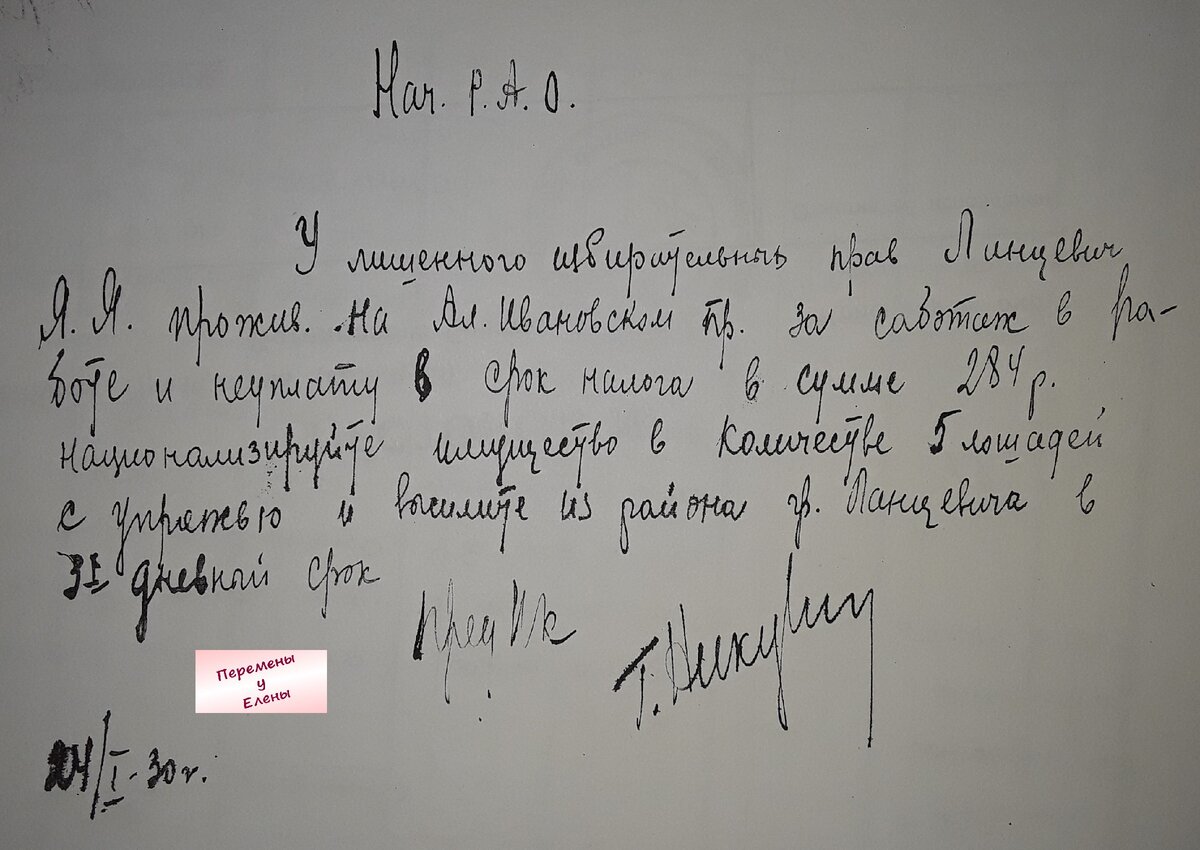 Нач. Р. А. О.
У лишенного избирательных прав Ланцевич
Я. Я. прожив. на Ал. Ивановском пр. за саботаж в ра-
боте и неуплату в срок налога в сумме 284 р.
национализируйте имущество в количестве 5 лошадей
с упряжью и вышлите из района гр. Ланцевича в
3х дневный срок
Пред Ик
Перемены
у
Елены
24/I-30 г.